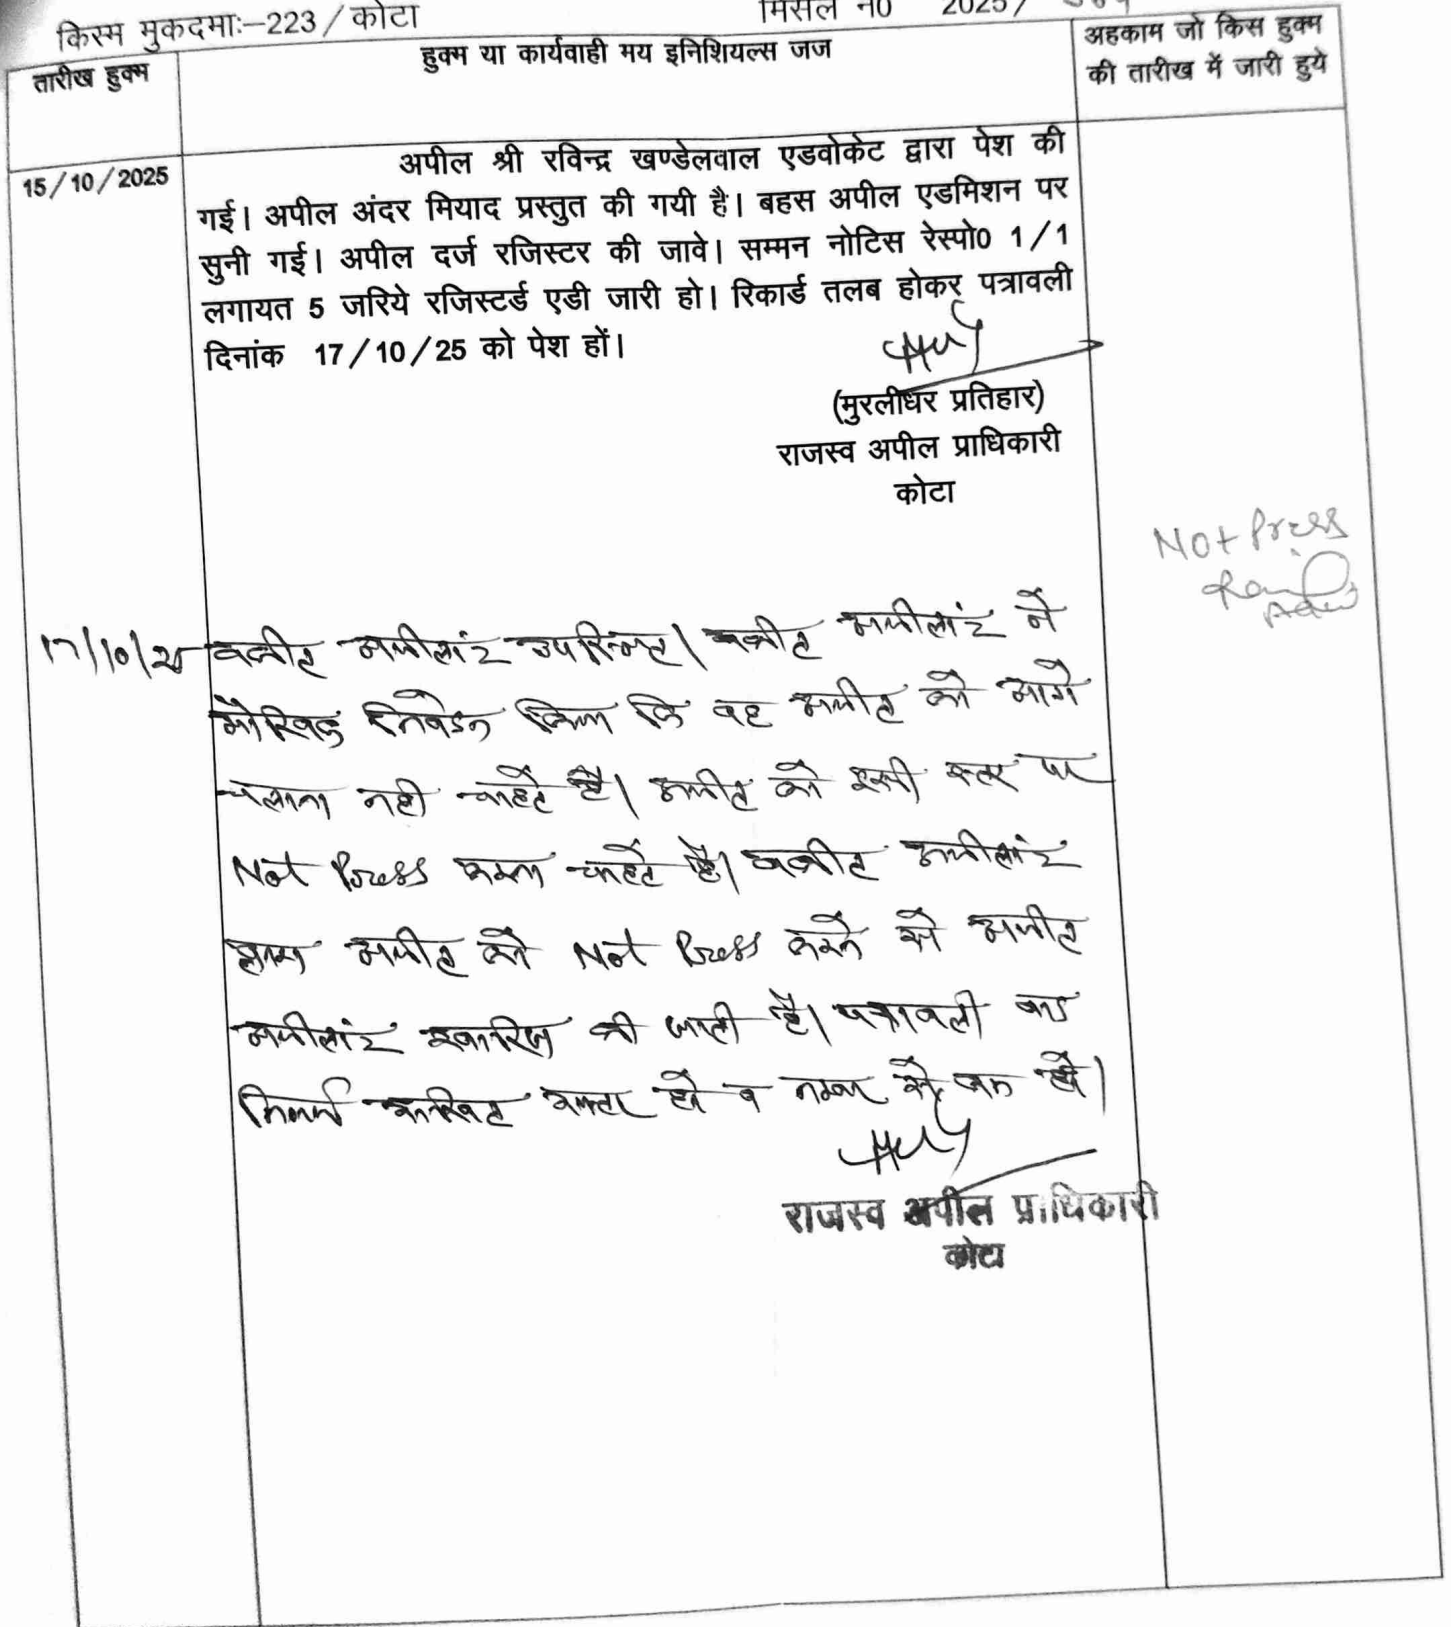 किस्म मुकदमाः–223/कोटा
मिसल न0 2025/
तारीख हुक्म
हुक्म या कार्यवाही मय इनिशियल्स जज
अहकाम जो किस हुक्म
की तारीख में जारी हुये
15/10/2025
अपील श्री रविन्द्र खण्डेलवाल एडवोकेट द्वारा पेश की
गई। अपील अंदर मियाद प्रस्तुत की गयी है। बहस अपील एडमिशन पर
सुनी गई। अपील दर्ज रजिस्टर की जावे। सम्मन नोटिस रेस्पो0 1/1
लगायत 5 जरिये रजिस्टर्ड एडी जारी हो। रिकार्ड तलब होकर पत्रावली
दिनांक 17/10/25 को पेश हों।
(मुरलीधर प्रतिहार)
राजस्व अपील प्राधिकारी
कोटा
Not Press
17/10/25 वकील अपीलांट उपस्थित। वकील अपीलांट ने
मौखिक निवेदन किया कि वह अपील को आगे
चलाना नही चाहते है। अपील को इसी स्तर पर
Not Press करना चाहते है। वकील अपीलांट
द्वारा अपील को Not Press करने से अपील
अपीलांट खारिज की जाती है। पत्रावली का
निर्णय शुमार हो व नम्बर से कम हो।
राजस्व अपील प्राधिकारी
कोटा